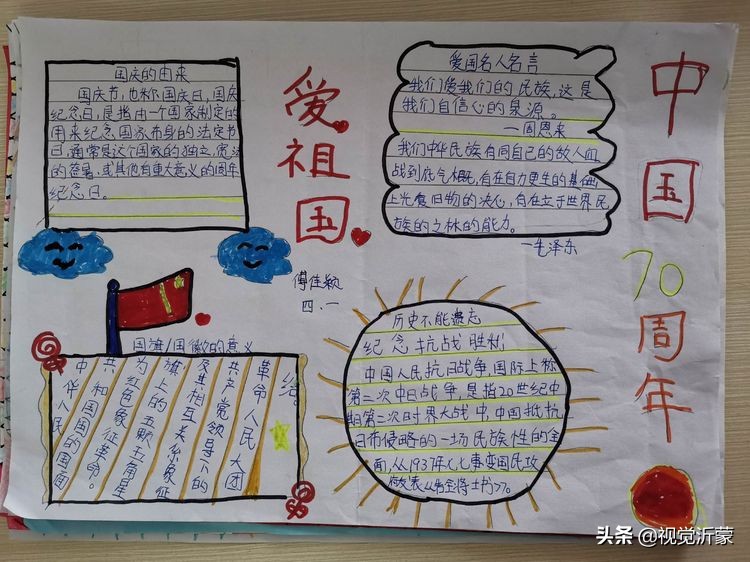 国庆的由来
国庆节,也称国庆日,国庆
纪念日,是指由一个国家制定的
用来纪念国家本身的法定节
日,通常是这个国家的独立,宪法
的签署,或其他有重大意义的周年
纪念日。
爱祖国
爱国名人名言
我们爱我们的民族,这是
我们自信心的泉源。
—周恩来
我们中华民族有同自己的敌人血
战到底气概,有在自力更生的基础
上光复旧物的决心,有在立于世界民
族的之林的能力。
—毛泽东
中国70周年
傅佳颖
四.一
国旗/国徽的意义
中华人民
共和国国的国面
为红色象征革命。
旗上的五颗五角星
及其相互关系象征
共产党领导下的
革命人民大团
结
历史不能遗忘
纪念抗战胜利
中国人民抗日战争,国际上称
第二次中日战争,是指20世纪中
期第二次世界大战中,中国抵抗
日布侵略的一场民族性的全
面,从1937年七七事变国民政